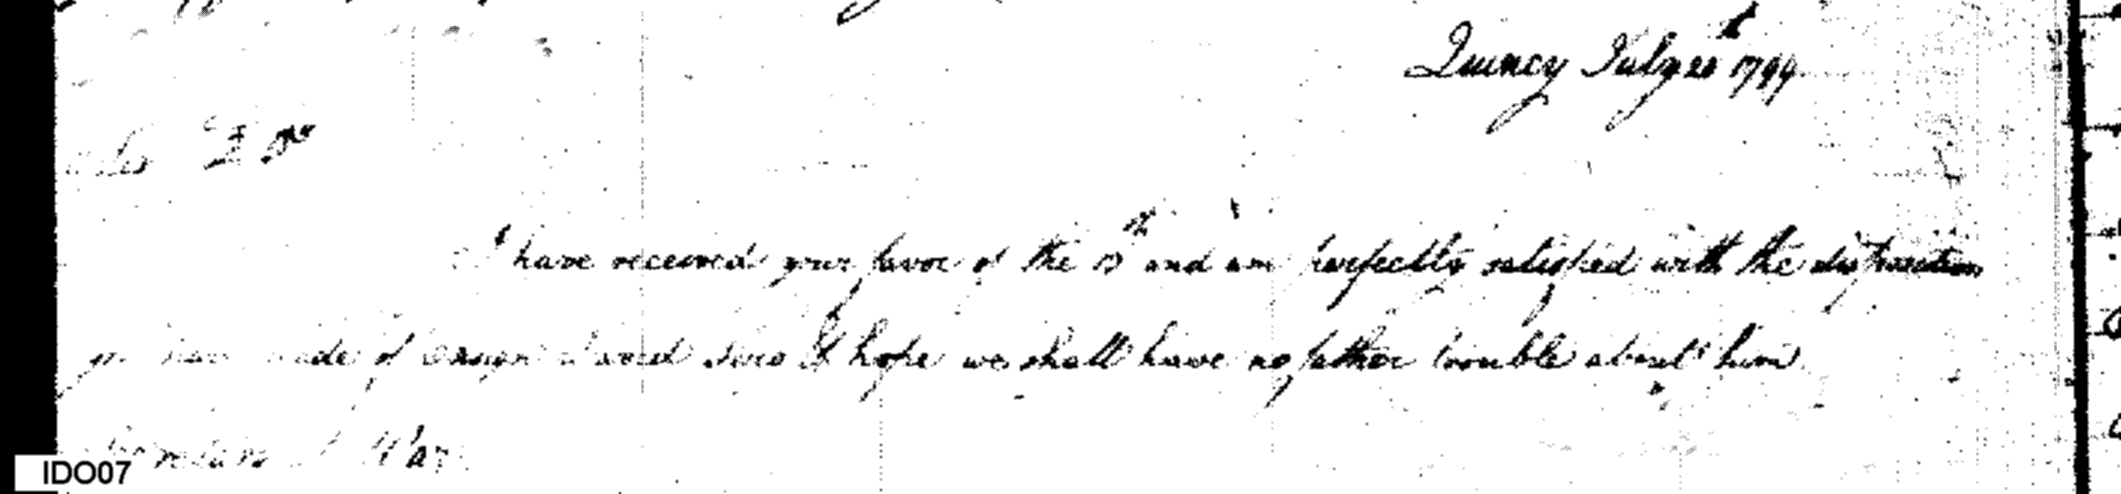 Quincy July 20th 1799
Sir
I have received your favor of the 13th and am perfectly satisfied with the disposition
you have made of Ensign I hope we shall have no father trouble about him
War
IDO07